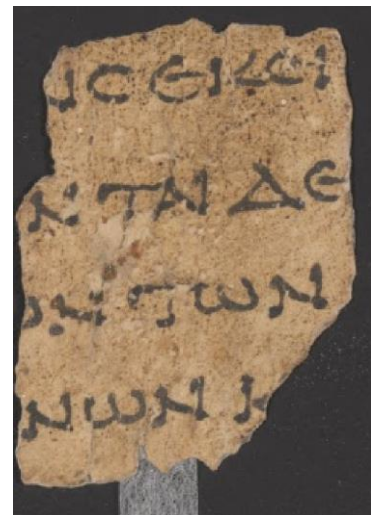 ΙϹΕΙΚΕΙ
Ν ΤΑΙ ΔΕ
ΤΩΝ
ΝΩΝ Κ